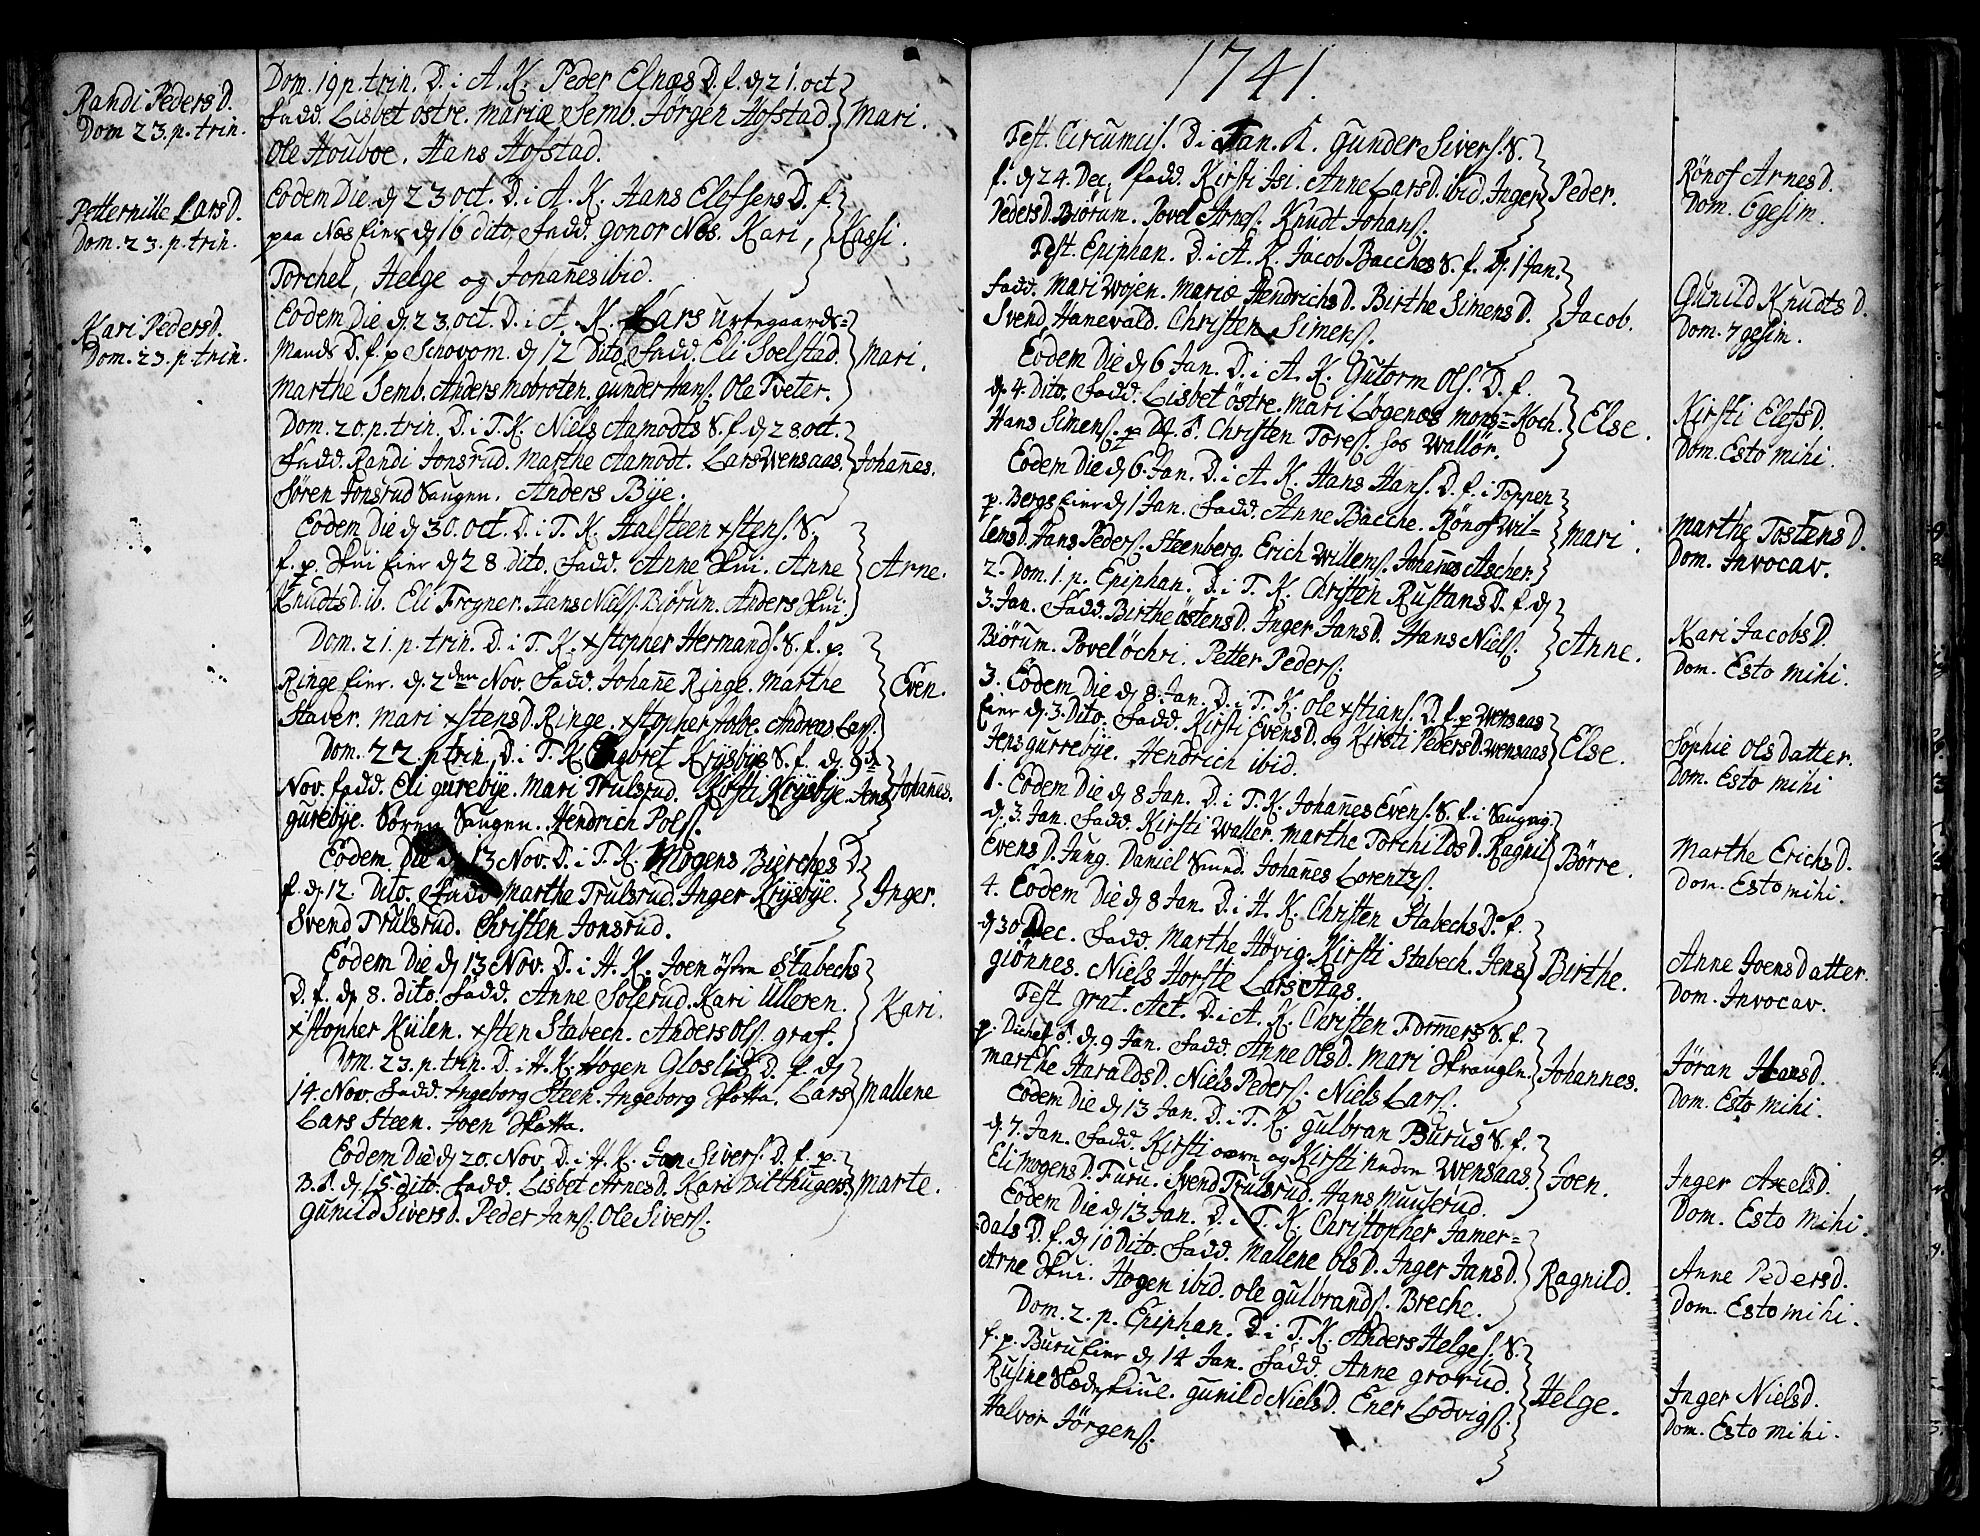 Randi Pedersd.
Dom 23. p. trin.
Petternille Larsd.
Dom. 23. p. trin.
Kari Pedersd.
Dom. 23. p. trin.
Dom. 19 p. trin. D. i A. K. Peder Elnæs D. f. d. 21. oct
Fadd. Lisbet östre. Mariæ Semb. Jörgen Hofstad. Mari.
Ole Houboe. Hans Hofstad.
Eodem Die. d. 23 oct. D. i A. K. Hans Elefsens D. f.
paa Næs Eier d. 16 dito. Fadd. Gonor Næs. Kari, Kassi.
Torchel, Helge og Johan̄es ibid.
Eodem Die d. 23. oct. D. i A. K. Lars Urtegaards=
Mands D. f. p Schovom. d. 12 Dito. Fadd. Eli Soelstad. Mari.
Marthe Semb. Anders gunder Hans. Ole Tveter.
Dom. 20. p. trin. D. i T. K. Niels Aamodts S. f. d. 28 oct.
Fadd. Randi Jonsrud. Marthe Aamodt. Lars Wensaas. Johan̄es.
Sören Jonsrud Saugen. Anders Bÿe.
Eodem Die d. 30. oct. D. i T. K. Halsteen xstens. S.
f. p. Skui Eier d. 28. dito. Fadd. Anne Skui. Anne Arne.
Knudtsd. ib. Eli Frogner. Hans Niels. Biörum. Anders Skui.
Dom. 21. p. trin. D. i T. K. xstopher Hermands. S. f. p.
Ringe Eier. d. 2den Nov. Fadd. Johan̄e Ringe. Marthe Even.
Staver. Mari xstensd. Ringe. xstopher Andreas Lars.
Dom. 22. p trin. D. i T. K. Engbret Krÿsbÿe S. f. d. 9de
Nov. Fadd. Eli gurebÿe. Mari Trulsrud. Kirsti Krÿsbÿe. Jens Johan̄es.
gurebÿe. Sören Saugen. Hendrich Pols.
Eodem Die d. 13 Nov. D. i T. K. Mogens Bierches D.
f. d. 12 Dito. Fadd Marthe Trulsrud. Inger Krÿsbÿe. Inger.
Svend Trulsrud. Christen Jonsrud.
Eodem Die d. 13 Nov. D. i H. K. Joen östre Stabechs
D. f. d. 8. dito. Fadd. Anne Solerud. Kari Ulleren. Kari.
xstopher Kiilen. xsten Stabech. Anders Ols. graf.
Dom. 23. p. trin. D. i H. K. Hogen Gloslis D. f. d.
14. Nov. Fadd. Ingeborg Steen. Ingeborg Skotta. Lars Mallene
Lars Steen. Joen Skotta.
Eodem Die d. 20. Nov. D. i H. K. Jan Sivers. D. f. p.
B. S. d. 15 dito. Fadd. Lisbet Arnesd. Kari Marte.
Gunild Siversd. Peder Jans. Ole Sivers.
1741.
Fest. Circumcis. D. i Jan. K. Gunder Sivers. S.
f. d. 24. Dec. Fadd. Kirsti Isi. Anne Larsd. ibid. Inger Peder.
Pedersd. Biörum. Povel Arnes. Knudt Johans.
Fest. Epiphan. D. i A. K. Jacob Bacches S. f. d. 1 Jan.
Fadd. Mari Wøjen. Mariæ Hendrichsd. Birthe Simensd. Jacob.
Svend Hanevald. Christen Simens.
Eodem Die d. 6 Jan. D. i A. K. Gutorm Ols. D. f.
d. 4. Dito. Fadd. Lisbet östre. Mari Løgenæs Mons=Koch. Else.
Hans Simens. p Christen Tores. hos Wallör.
Eodem Die d. 6. Jan. D. i A. K. Hans Hans. D. f. i Toppen
p. Bergs Eier d. 1 Jan. Fadd. Anne Bacche. Rönof Wil= Mari.
lensd. Hans Peders. Steenberg. Erich Willems. Johan̄es Ascher.
2. Dom. 1. p. Epiphan. D. i T. K. Christen Rustans D. f. d.
3. Jan. Fadd. Birthe Östensd. Inger Jansd. Hans Niels. Anne.
Biörum. Povel öchri. Petter Peders.
3. Eodem Die d. 8. Jan. D. i T. K. Ole xstians. D. f. p Wensaas
Eier d. 3. Dito. Fadd. Kirsti Evensd. og Kirsti Pedersd. Wensaas Else.
Jens gurrebÿe. Hendrich ibid.
1. Eodem Die d. 8 Jan. D. i T. K. Johan̄es Evens. S. f. i Saugvig.
d. 3. Jan. Fadd. Kirsti Waller. Marthe Torchildsd. Ragnil Börre.
Evensd. Jung. Daniel Sund. Johan̄es Lorentzs.
4. Eodem Die d. 8 Jan. D. i H. K. Christen Stabechs D. f.
d. 30 Dec. Fadd. Marthe Hövig. Kirsti Stabech. Jens Birthe.
giönnes. Niels Horste Lars Aas.
Fest. grat. Act. D. i A. K. Christen Torm̄ers S. f.
d. 9 Jan. Fadd. Anne Olsd. Mari Skrangln. Johannes.
Marthe Haraldsd. Niels Peders. Niels Lars.
Eodem Die d. 13 Jan. D. i T. K. Gulbran Burus S. f.
d. 7. Jan. Fadd. Kirsti øvre og Kirsti Nedre Wensaas. Joen.
Eli Mogensd. Furu. Svend Trulsrud. Hans Muuserud.
Eodem Die d. 13 Jan. D. i T. K. Christopher Jamer=
dals D. f. d. 10 Dito. Fadd. Mallene Olsd. Inger Jansd. Ragnild.
Arne Skui. Hogen ibid. Ole Gulbrands. Breche.
Dom. 2. p. Epiphan. D. i T. K. Anders Helges. S.
f. p. Buru Eier d. 14 Jan. Fadd. Anne Grorud. Helge.
Rusine Gunild Nielsd. Ener Lodvigs.
Halvor Jörgens.
Rönof Arnesd.
Dom. 6gesim.
Gunild Knudtsd.
Dom. 7gesim.
Kirsti Elefsd.
Dom Esto mihi.
Marthe Tostensd.
Dom. Invocav.
Kari Jacobsd.
Dom. Esto mihi.
Sophie Olsdatter.
Dom. Esto mihi
Marthe Erichsd.
Dom. Esto mihi.
Anne Joensdatter.
Dom. Invocav.
Jöran Hansd.
Dom. Esto mihi.
Inger Axelsd.
Dom. Esto mihi.
Anne Pedersd.
Dom. Esto mihi.
Inger Nielsd.
Dom. Esto mihi.